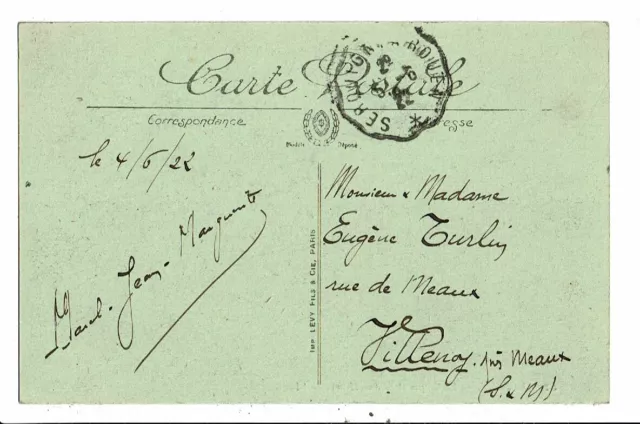 Carte Postale
Correspondance
Adresse
Modèle Déposé
SERQUIGNY A ROUEN
le 4/6/22
Marcel - Jean - Marguerite
Monsieur & Madame
Eugène Turlin
rue de Meaux
Villenoy. près Meaux
(S. & M)
IMP. LEVY FILS & CIE, PARIS